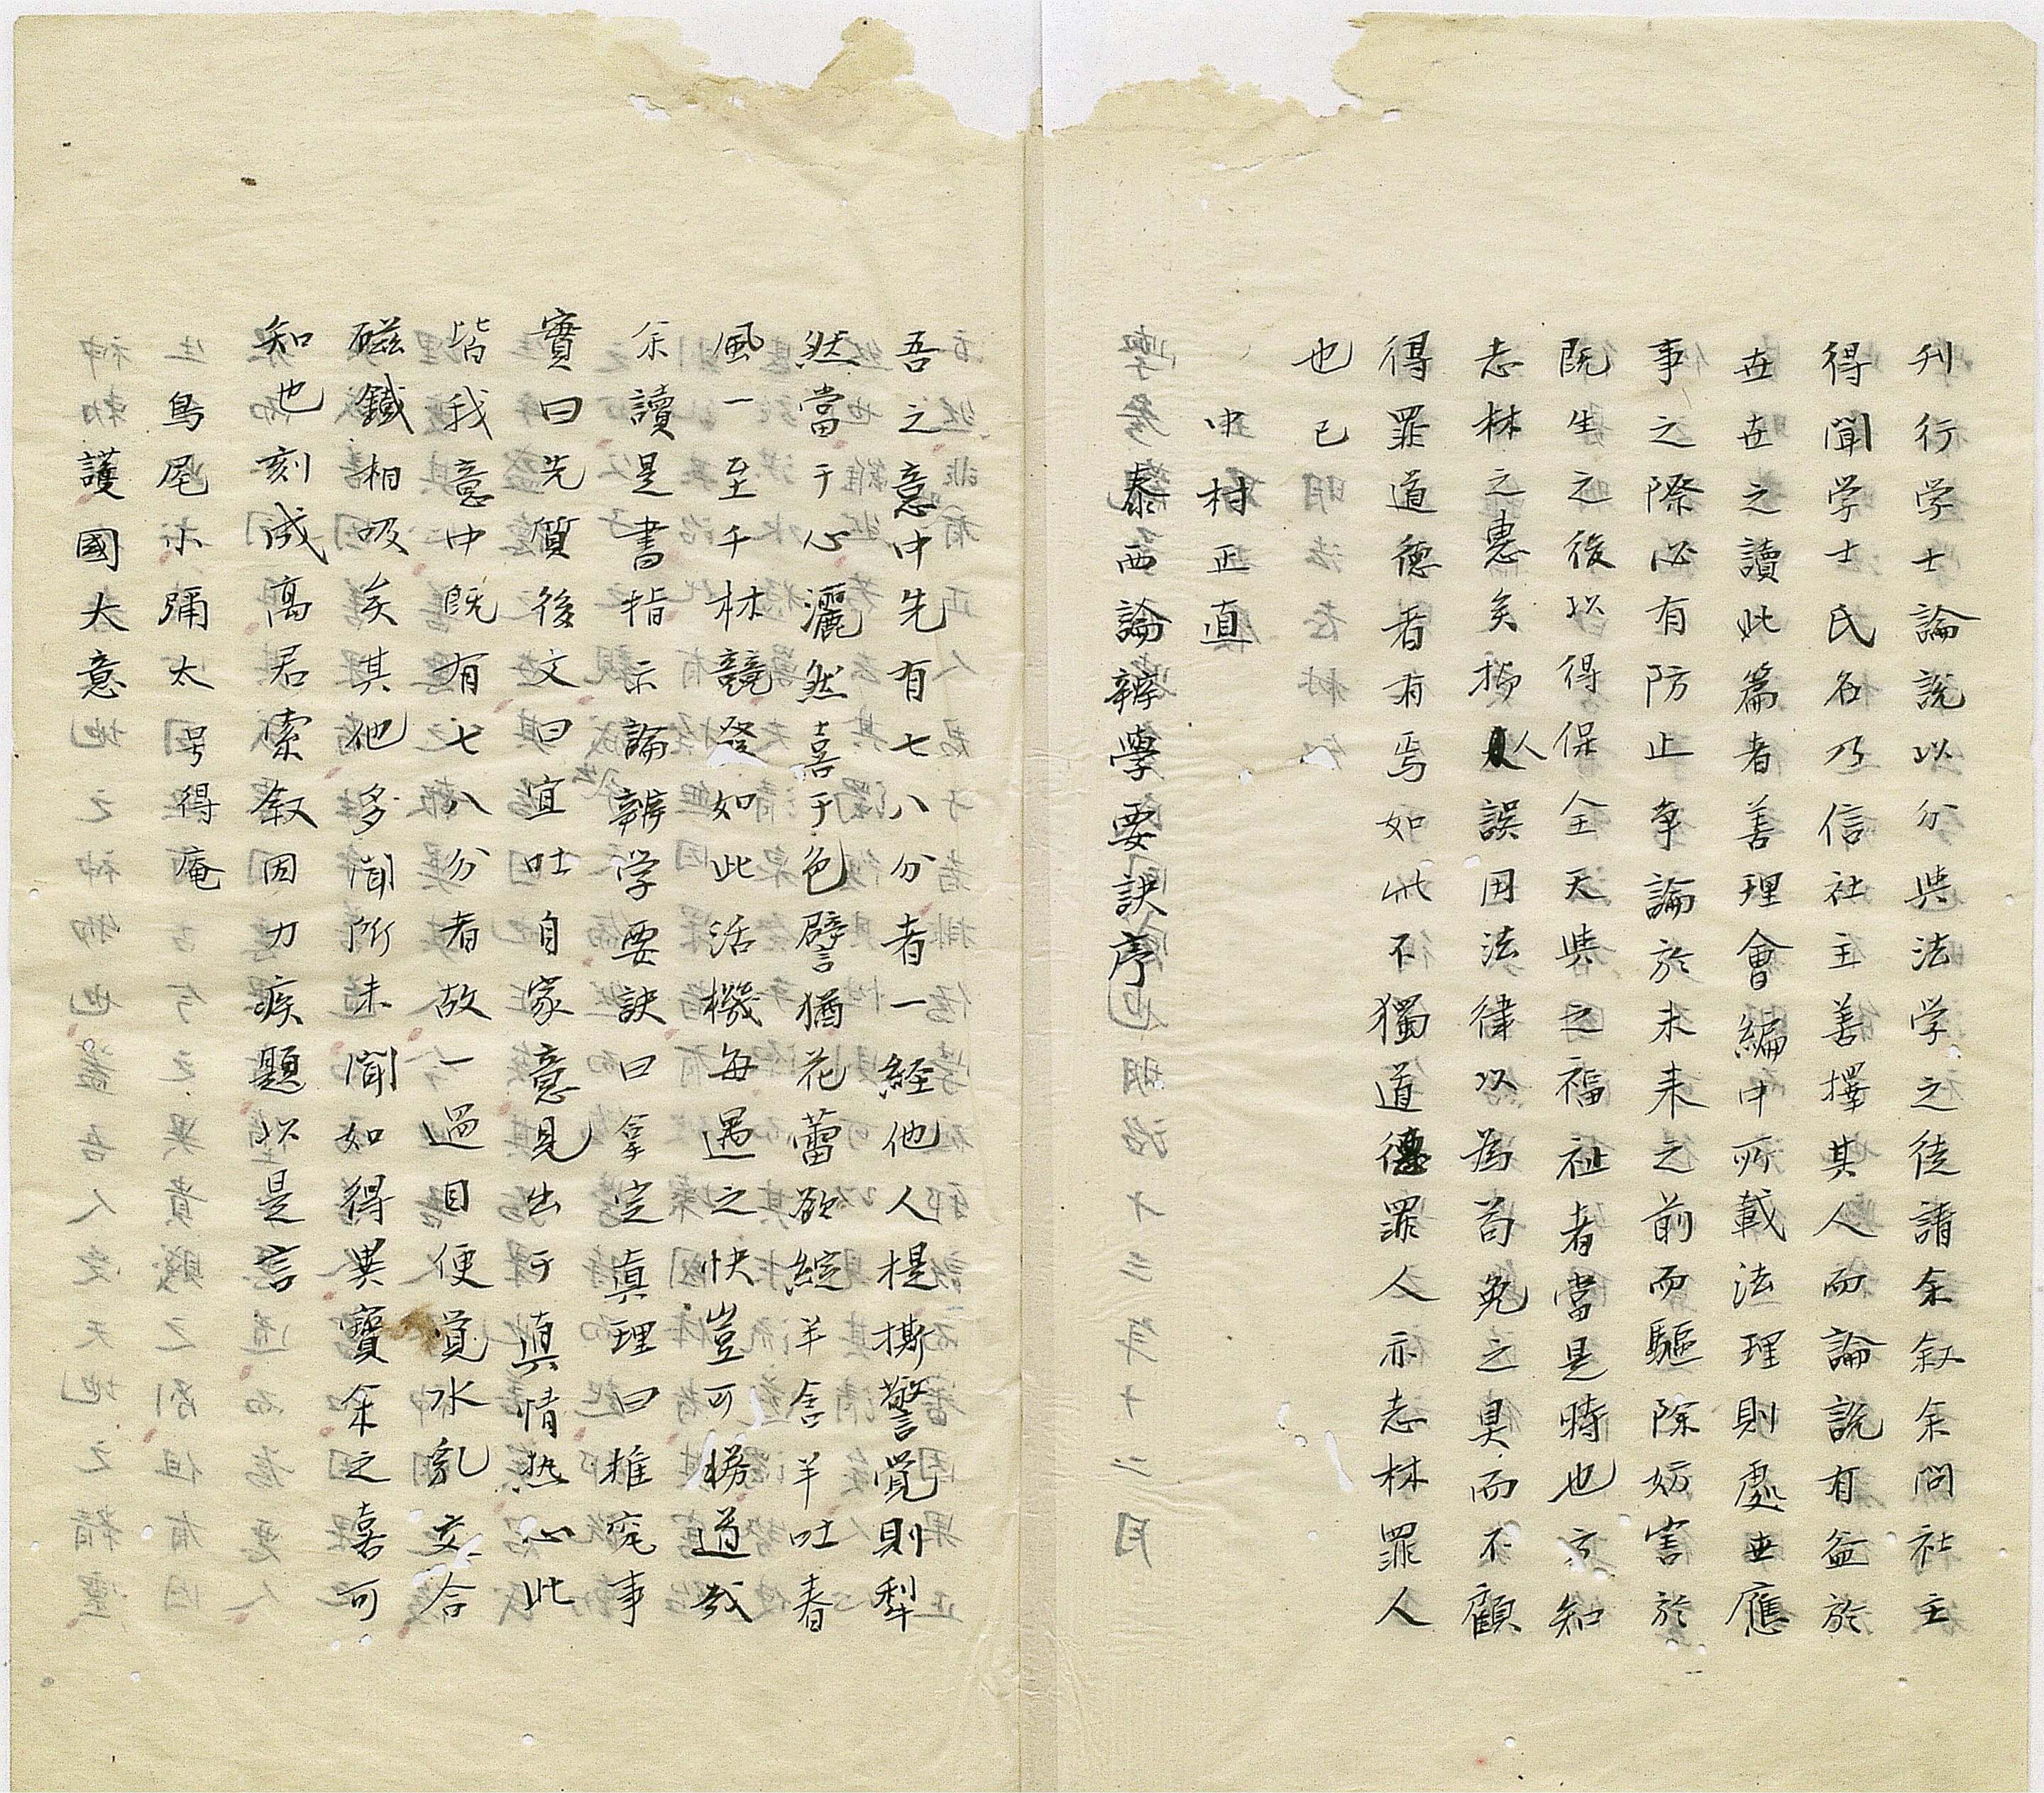 刊行学士論説以分与法学之徒請余叙余問社主
得聞学士氏名乃信社主善擇其人而論説有益於
世世之讀此篇者善理會編中所載法理則處世應
事之際必有防止争論於未来之前而驅除妨害於
既生之後以得保全天与之福祉者當是時也方知
志林之恵矣人誤用法律以為苟免之具而不顧
得罪道徳者有焉如此不獨道徳罪人亦志林罪人
也已
中村正直
泰西論辨學要訣序
吾之意中先有七八分者一経他人提撕警覺則犁
然當于心灑然喜于色譬猶花蕾欲綻半含半吐春
風一至千林競發如此活機每遇之快豈可勝道哉
余讀是書指示論辨学要訣曰拿定眞理曰推究事
實曰先質後文曰宜吐自家意見出于眞情热心此
皆我意中既有七八分者故一過目便覚水乳交合
磁鐵相吸矣其他多聞所未聞如得異寶余之喜可
知也刻成高君索叙因力疾題以是言
生鳥尾小彌太号得庵
護國大意